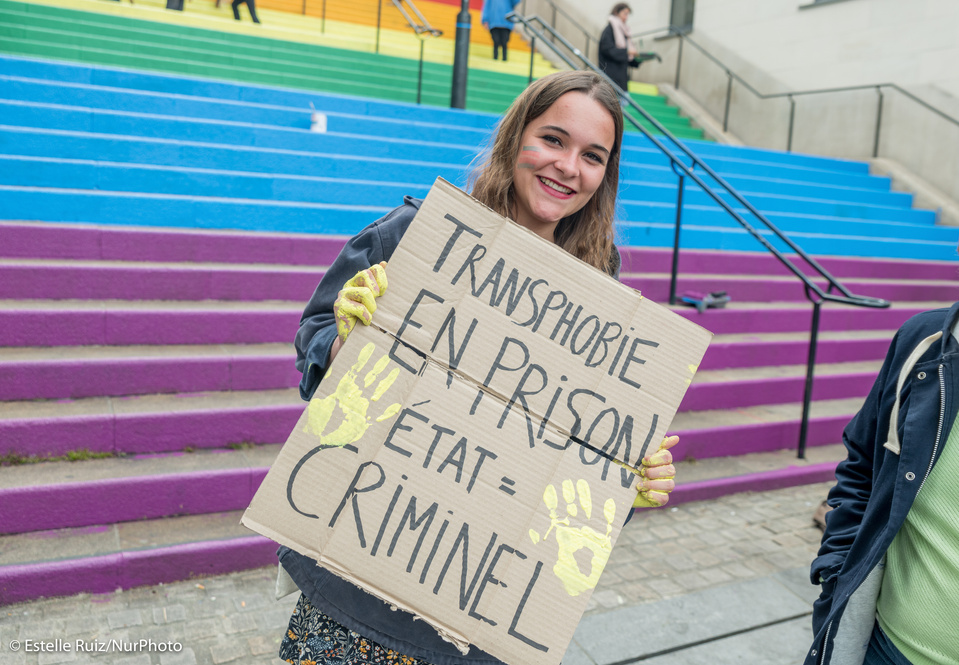 TRANSPHOBIE
EN PRISON
ÉTAT =
CRIMINEL
© Estelle Ruiz/NurPhoto